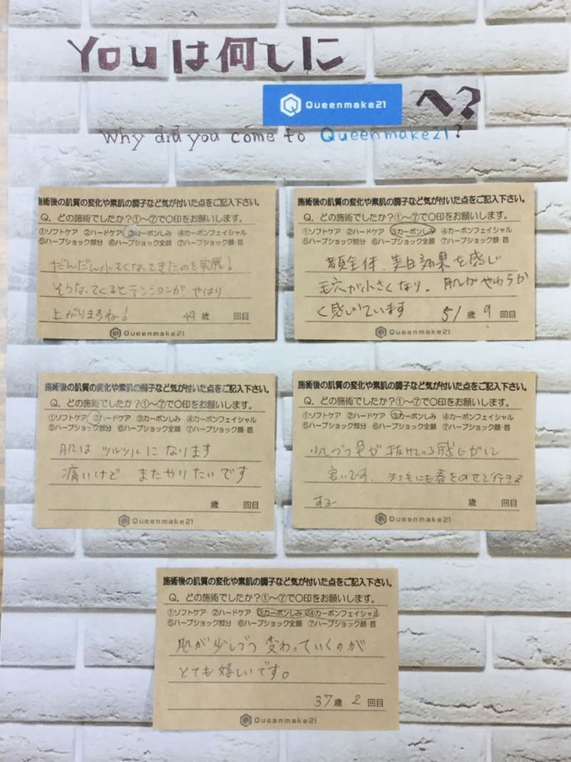 Youは何しに
Queenmake21 へ?
Why did you come to Queenmake21?
施術後の肌質の変化や素肌の調子など気が付いた点をご記入下さい。
Q. どの施術でしたか?①〜⑦で〇印をお願いします。
①ソフトケア ②ハードケア ③カーボンしみ ④カーボンフェイシャル
⑤ハーブショック部分 ⑥ハーブショック全顔 ⑦ハーブショック顔・首
だんだん小さくなってきたのを実感!
そうなってくるとテンションが やはり
上がりますね! 49歳 回目
Queenmake21
施術後の肌質の変化や素肌の調子など気が付いた点をご記入下さい。
Q. どの施術でしたか?①〜⑦で〇印をお願いします。
①ソフトケア ②ハードケア ③カーボンしみ ④カーボンフェイシャル
⑤ハーブショック部分 ⑥ハーブショック全顔 ⑦ハーブショック顔・首
顔全体、美白効果を感じ
毛穴が小さくなり、肌がやわらか
く感じています 51歳 9回目
Queenmake21
施術後の肌質の変化や素肌の調子など気が付いた点をご記入下さい。
Q. どの施術でしたか?①〜⑦で〇印をお願いします。
①ソフトケア ②ハードケア ③カーボンしみ ④カーボンフェイシャル
⑤ハーブショック部分 ⑥ハーブショック全顔 ⑦ハーブショック顔・首
肌は ツルツル に なります
痛いけど またやりたいです
歳 回目
Queenmake21
施術後の肌質の変化や素肌の調子など気が付いた点をご記入下さい。
Q. どの施術でしたか?①〜⑦で〇印をお願いします。
①ソフトケア ②ハードケア ③カーボンしみ ④カーボンフェイシャル
⑤ハーブショック部分 ⑥ハーブショック全顔 ⑦ハーブショック顔・首
が 抜けている感じがして
良いです。
歳 回目
Queenmake21
施術後の肌質の変化や素肌の調子など気が付いた点をご記入下さい。
Q. どの施術でしたか?①〜⑦で〇印をお願いします。
①ソフトケア ②ハードケア ③カーボンしみ ④カーボンフェイシャル
⑤ハーブショック部分 ⑥ハーブショック全顔 ⑦ハーブショック顔・首
肌が少しづつ変わっていくのが
とても嬉しいです。
37歳 2回目
Queenmake21